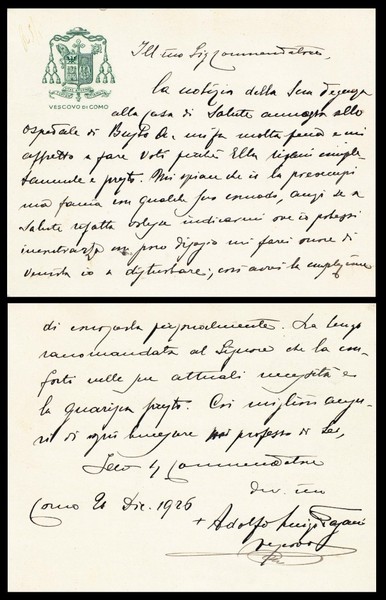 VESCOVO DI COMO
Ill.mo Sig. Commendatore,
La notizia della Sua degenza
alla casa di Salute annessa allo
Ospedale di Busto A. mi fa molta pena e mi
affretto a fare voti perchè Ella
e presto. Mi spiace che io la preoccupi
ma faccia con qualche suo comodo, anzi se a
Salute rifatta volesse indicarmi ove io potessi
con poco disagio mi farei onore di
venirla io a disturbare; così avrei la
di conoscerla personalmente. La tengo
raccomandata al Signore che la con-
forti nelle sue attuali necessità e
la guarisca presto. Coi migliori augu-
ri di ogni bene professo di Lei,
Commendatore
dev.mo
Como 20 Dic. 1926
+ Adolfo Luigi Pagani
Vescovo